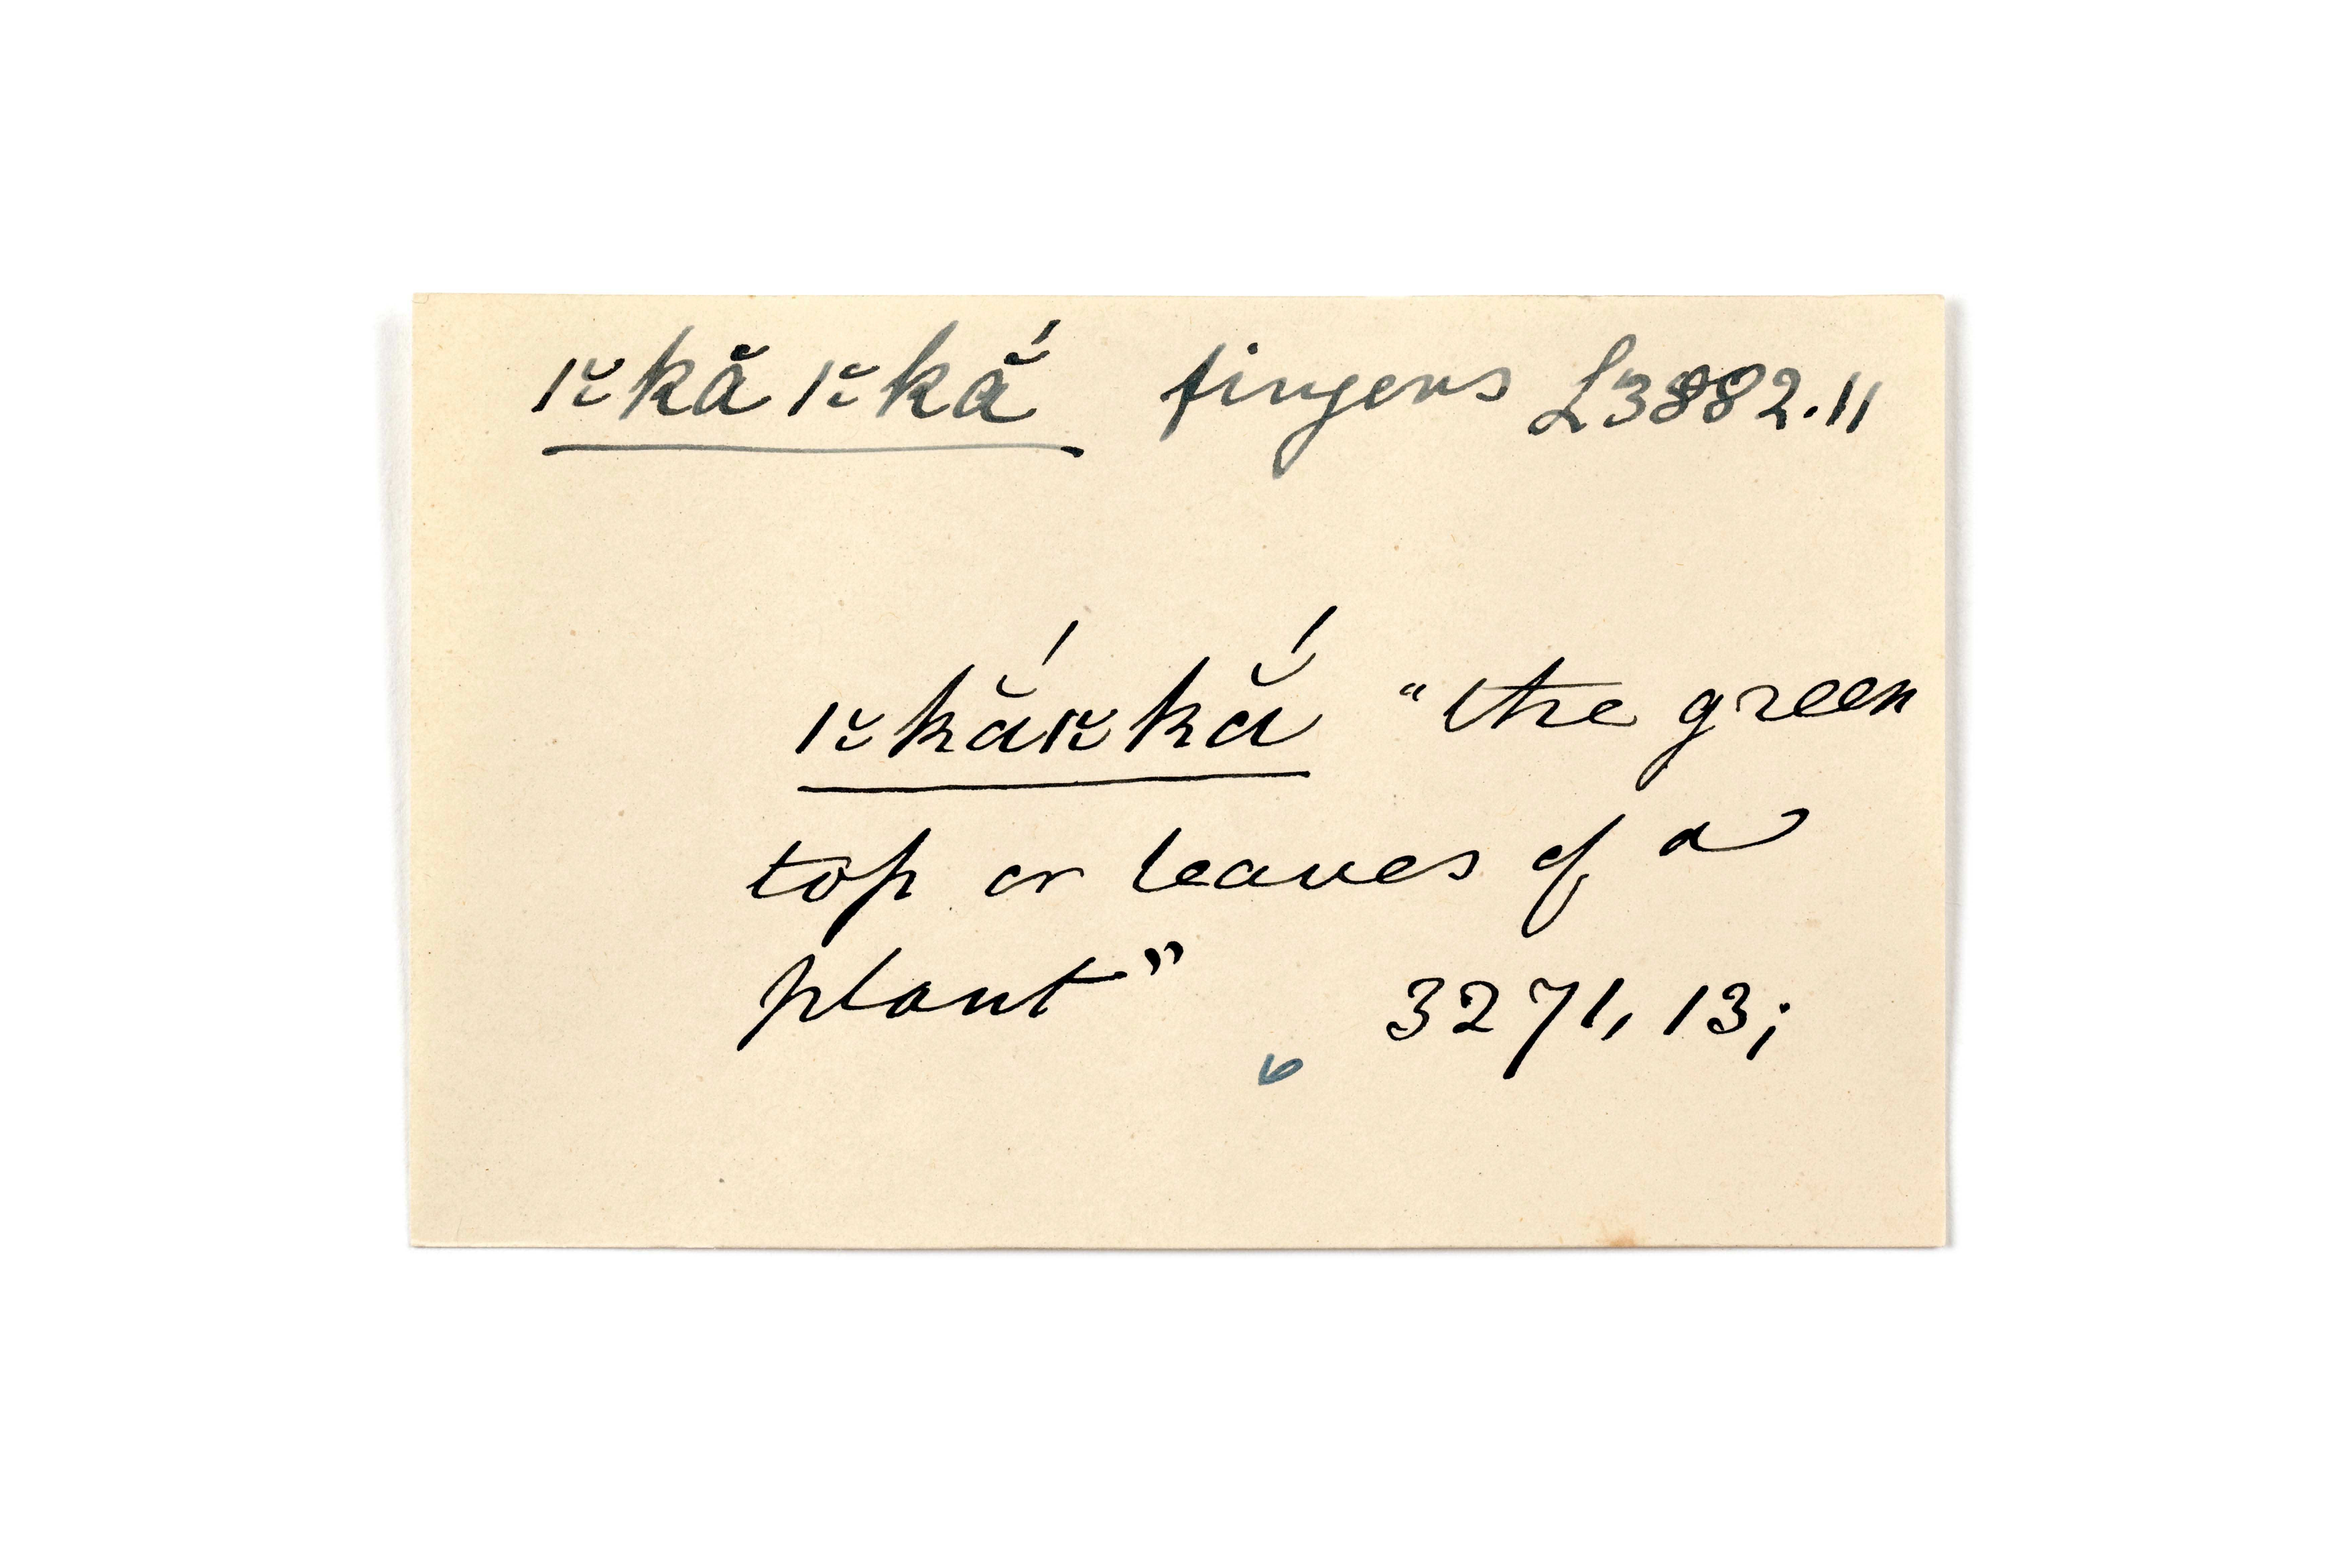 ǀ̮̆kă ǀ̮̆kắ fingers L3882.11
ǀ̮̆kắǀ̮̆kắ "the green
top or leaves of a
plant" 3271, 13;